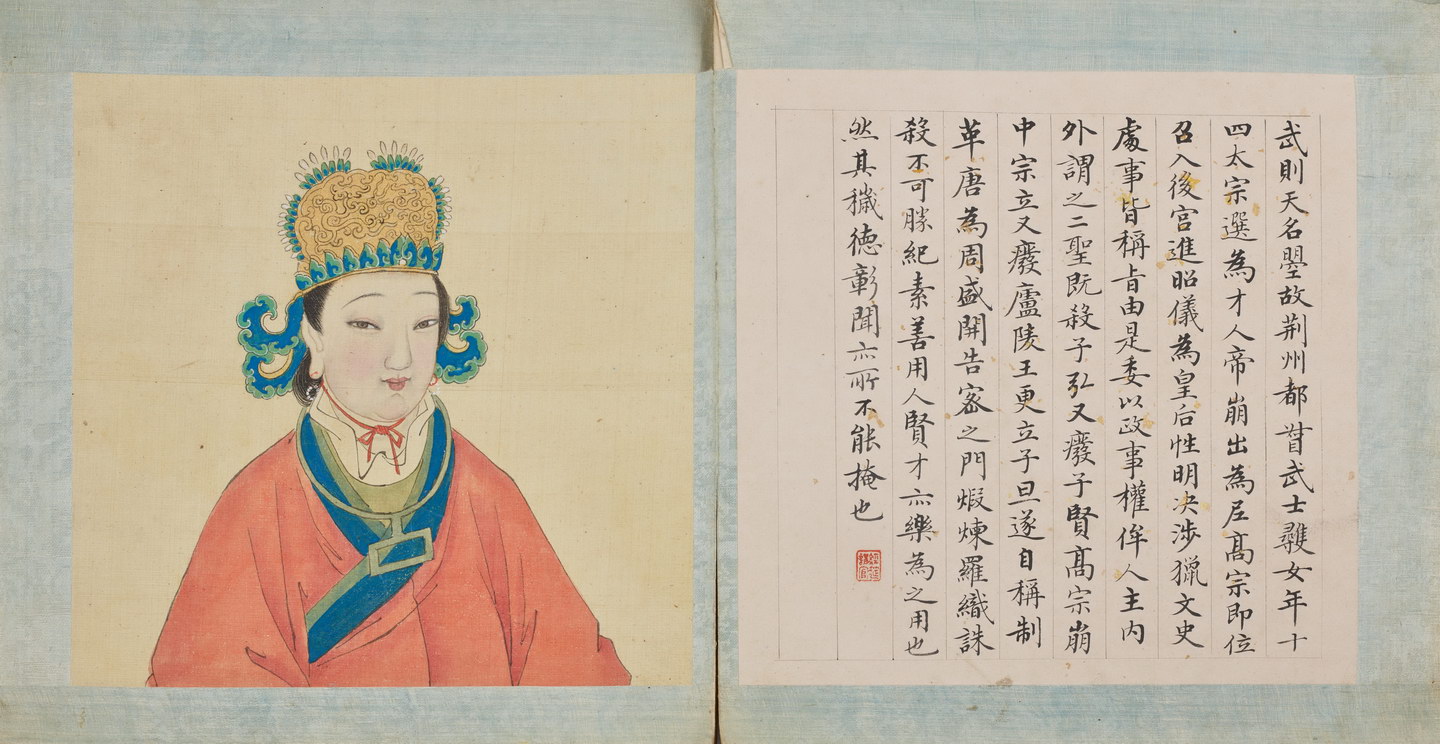 武則天名曌故荆州都督武士彠女年十
四太宗選為才人帝崩出為尼髙宗即位
召入後宫進昭儀為皇后性明决涉獵文史
處事皆稱旨由是委以政事權侔人主内
外謂之二聖既殺子弘又癈子賢髙宗崩
中宗立又癈廬陵王更立子旦遂自稱制
革唐為周盛開告密之門煆煉羅織誅
殺不可勝紀素善用人賢才亦樂為之用也
然其穢德彰聞亦所不能掩也